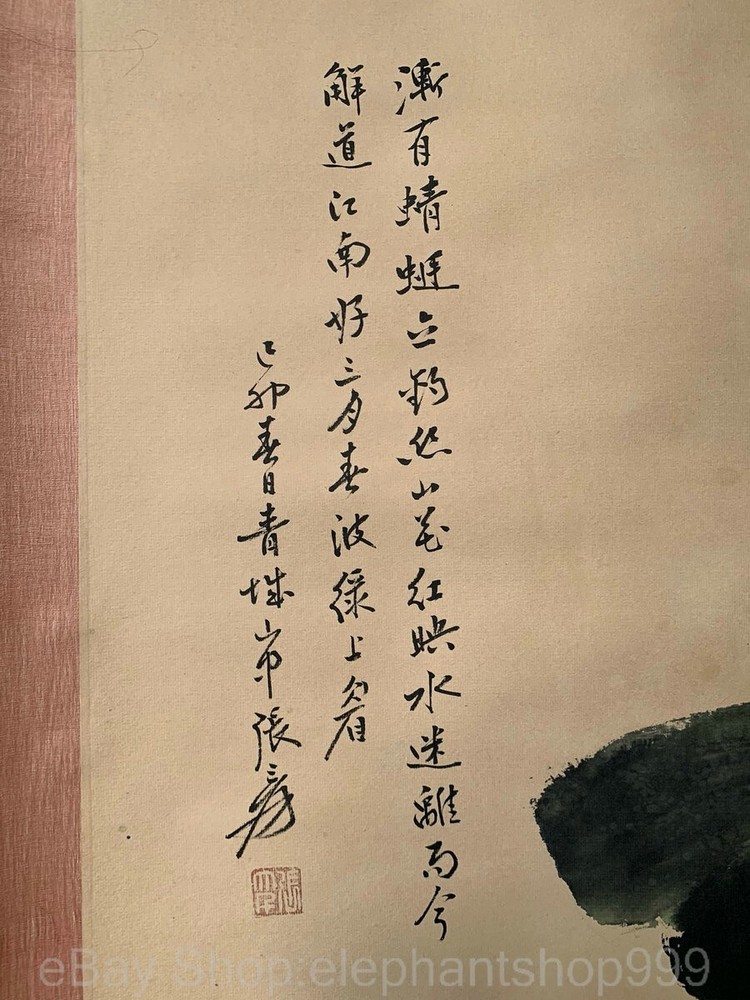 漸有蜻蜓立釣絲山花紅暎水迷離而今
解道江南好三月春波綠上眉
己卯春日青城山中張爰
eBay Shop:elephantshop999